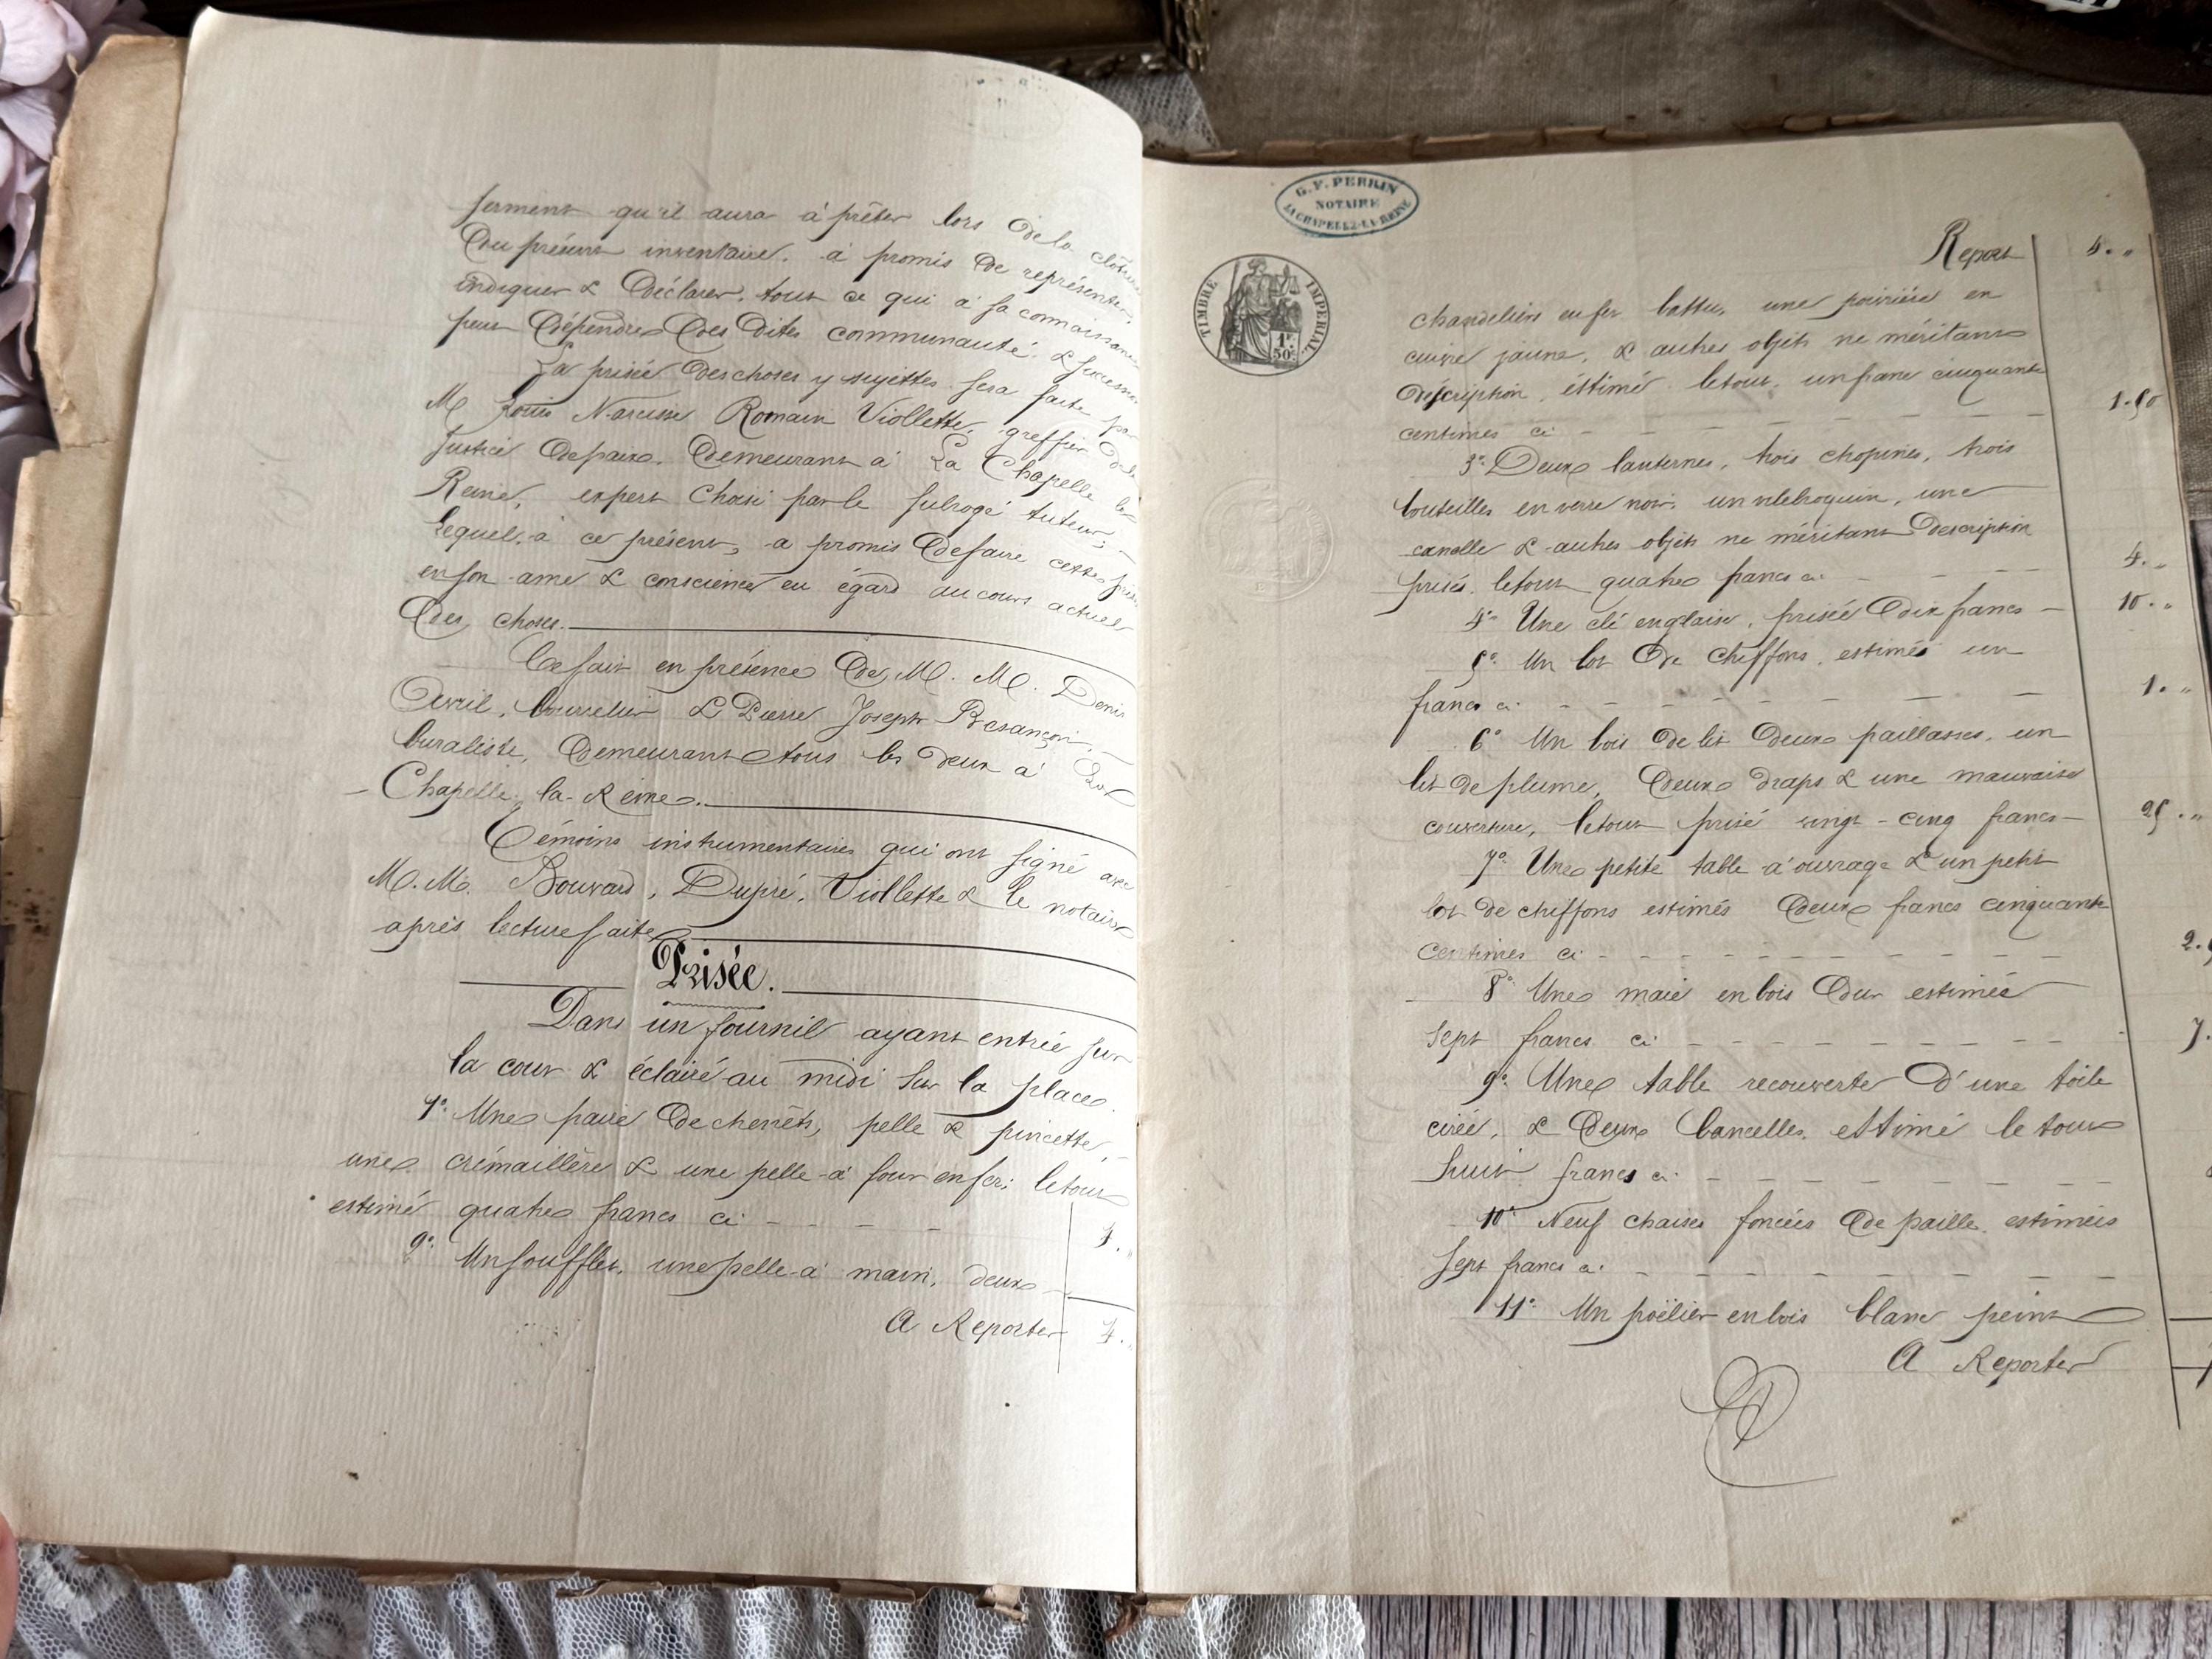 serment qu'il aura à prêter lors de la clôture
du présent inventaire. à promis de représenter,
indiquer & déclarer, tout ce qui à sa connaissance
peut dépendre des dites communauté & succession
La prisée des choses y sujettes sera faite par
M Louis Narcisse Romain Viollette, greffier de la
justice de paix, demeurant à La Chapelle la
Reine, expert choisi par le subrogé tuteur;
lequel, à ce présent, a promis de faire cette prisée
en son ame & conscience eu égard au cours actuel
des choses.
Ce fait en présence de M. M. Denis
Avril, bourrelier & Pierre Joseph Besançon,
buraliste, demeurant tous les deux à La
Chapelle-la-Reine.
Témoins instrumentaires qui ont signé avec
M. M. Bouvard, Dupré, Viollette & le notaire
après lecture faite
Prisée.
Dans un fournil ayant entrée sur
la cour & éclairé au midi sur la place.
1° Une paire de chenêts, pelle & pincette,
une crémaillère & une pelle-à four en fer; le tout
estimé quatre francs ci - - - - 4. "
2° Un soufflet, une pelle-à main, deux
A Reporter 4.
G. F. PERRIN
NOTAIRE
LA CHAPELLE-LA-REINE
TIMBRE IMPERIAL
1F.
50C.
Report 4. "
chandeliers en fer battu, une poivrière en
cuivre jaune, & autres objets ne méritant
description, éstimé le tout, un franc cinquante
centimes ci - - - - - - - - 1.50
3° Deux lanternes, trois chopines, trois
bouteilles en verre noir, un vilebroquin, une
canelle & autres objets ne méritant description
prisés, le tout quatre francs ci - - - - 4. "
4° Une clé anglaise, prisée dix francs - 10. "
5° Un lot de chiffons, estimés un
franc ci - - - - - - - - - 1. "
6° Un bois de lit deux paillasses, un
lit de plume, deux draps & une mauvaise
couverture, le tout prisé vingt-cinq francs - 25. "
7° Une petite table à ouvrage & un petit
lot de chiffons estimés deux francs cinquante
centimes ci - - - - - - - - - 2.
8° Une maie en bois dur estimée
sept francs ci - - - - - - - - 7.
9° Une table recouverte d'une toile
cirée, & deux bancelles, estimé le tout
huit francs ci - - - - - - - -
10° Neuf chaises foncées de paille estimées
sept francs ci - - - - - - - -
11° Un poëlier en bois blanc peint
A Reporter